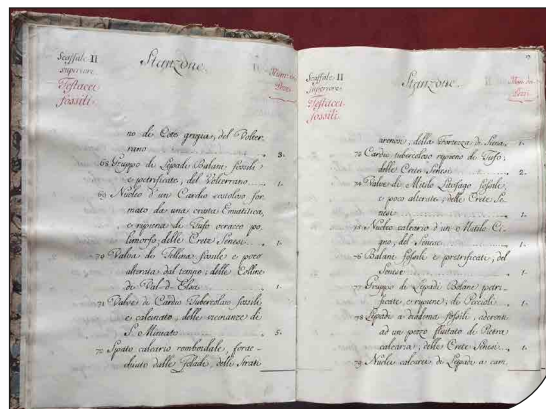 Scaffale II
Superiore
Testacei
fossili
Stanzone
Num: dei
Pezzi
no di Cote grigia, del Volter-
rano 3.
68 Gruppo di Lepadi Balani fossile
e petrificate, del Volterrano 1.
69 Nucleo d'un Cardio
mato da una crosta Ematitica,
e ripiena di Tufo ocraceo po-
limorfo, delle Crete Senesi 1.
70 Valva di Tellina fossile e poco
alterata dal tempo, delle Colline
di Val-d'Elsa 1.
71 Valve di Cardio Tubercolato fossili
e calcinate, delle vicinanze di
S. Miniato 5.
72 Spato calcario romboidale, forac-
chiato dalle Foladi, delli Strati
Scaffale II
Superiore
Testacei
fossili
Stanzone
Num: dei
Pezzi
arenosi, della Fortezza di Siena 1.
73 Cardio tubercoloso ripieno di Tufo,
delle Crete Senesi 2.
74 Valve di Mitilo Litofago fossile
e poco alterate, delle Crete Se-
nesi 1.
75 Nucleo calcario d'un Mitilo Ci-
gno, del Senese 1.
76 Balani fossili e petrificati, del
Senese 1.
77 Gruppo di Lepadi Balani petri-
ficate, e ripiene, di Peccioli 1.
78 Lepadi a diadema fossili, aderenti
ad un pezzo fluitato di Pietra
calcaria, delle Crete Senesi 1.
79 Nuclei calcarei di Lepadi a cam